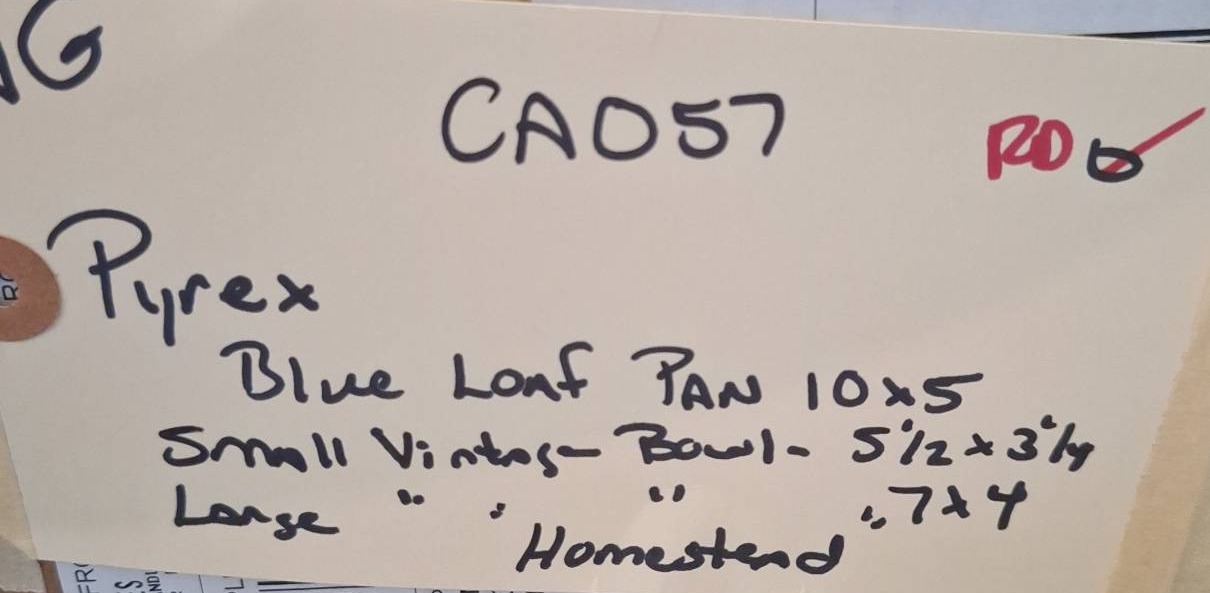 G
CA057
RD
Pyrex
Blue Loaf PAN 10x5
Small Vintage Bowl - 5 1/2 x 3 1/4
Large " " " 7x4
Homestead